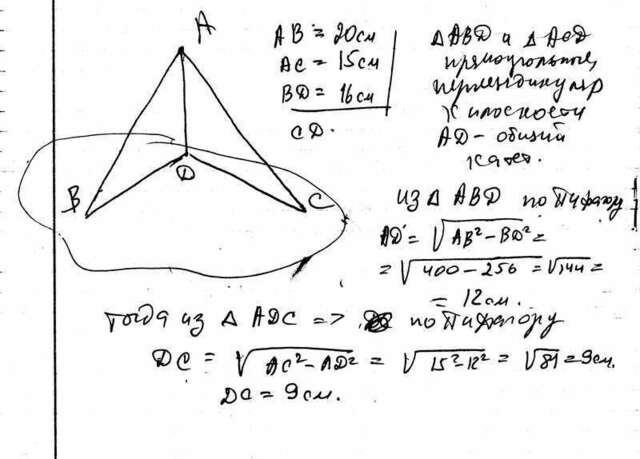 A
B
D
C
AB = 20см
AC = 15см
BD = 16см
CD.
△ABD и △ACD
прямоугольные,
перпендикуляр
к плоскости
AD - общий
катет.
из △ ABD по Пифагору
AD = √AB² - BD² =
= √400 - 256 = √144 =
= 12см.
Тогда из △ ADC => по Пифагору
DC = √AC² - AD² = √15² - 12² = √81 = 9см.
DC = 9см.